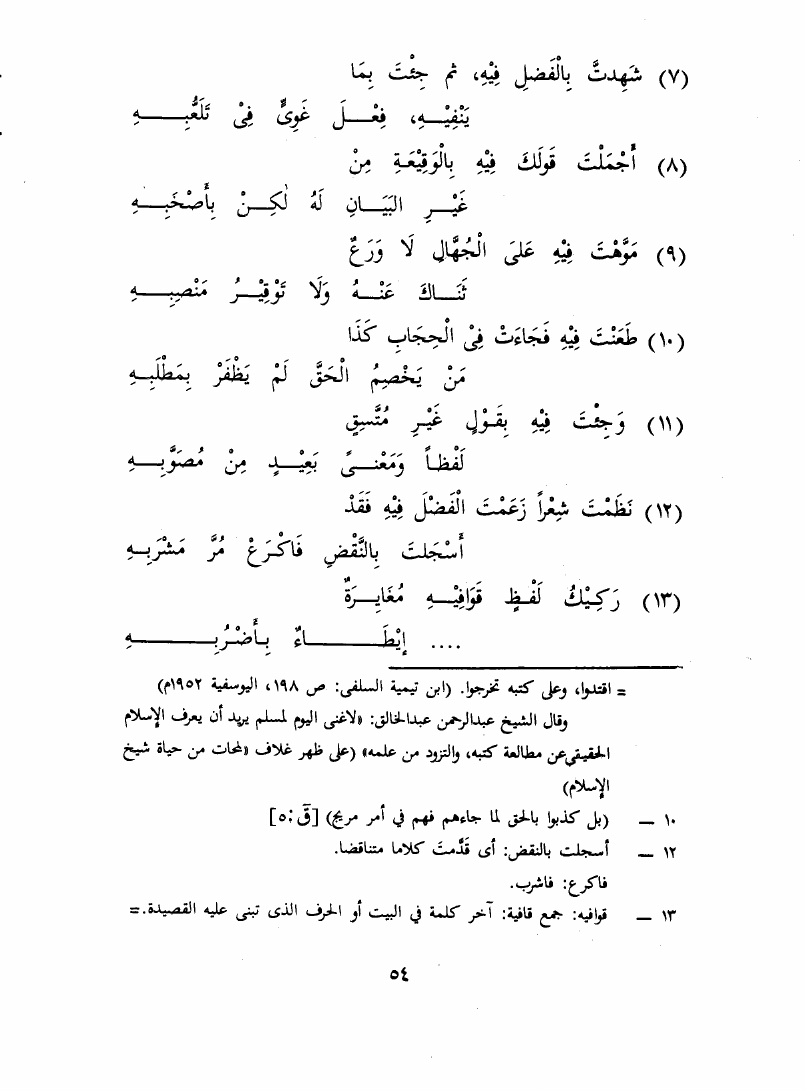 (٧) شَهِدتَّ بِالْفَضلِ فِيْهِ، ثم جِئْتَ بِمَا
يَنْفِيْـــهِ، فِعْـــلَ غَوِىٍّ فِىْ تَلَعُّبِـــهِ
(٨) أَجْمَلْتَ قَولَكَ فِيْهِ بِالْوَقِيْعَةِ مِنْ
غَيْـــرِ البَيَـــانِ لَهُ لٰكِـــنْ بِأَصْخَبِـــهِ
(٩) مَوَّهْتَ فِيْهِ عَلىَ الْجُهَّالِ لَا وَرَعٌ
ثَنَـــاكَ عَنْـــهُ وَلَا تَوْقِيْـــرُ مَنْصِبِـــهِ
(١٠) طَعَنْتَ فِيْهِ فَجَاءَتْ فِىْ الْحِجَابِ كَذَا
مَنْ يَخْصِمُ الْحَقَّ لَمْ يَظْفَرْ بِمَطْلَبِـــهِ
(١١) وَجِئْتَ فِيْهِ بِقَوْلٍ غَيْرِ مُتَّسِقٍ
لَفْظاً وَمَعْنـــىً بَعِيْـــدٍ مِنْ مُصَوَّبِـــهِ
(١٢) نَظَمْتَ شِعْراً زَعَمْتَ الْفَضْلَ فِيْهِ فَقَدْ
أَسْجَلتَ بِالنَّقْضِ فَاكْرَعْ مُرَّ مَشْرَبِـــهِ
(١٣) رَكِيْكُ لَفْظٍ قَوَافِيْـــهِ مُغَايِـــرَةٌ
.... إِيْطَـــاءٌ بِـأَضْرُبِـــهِ
= اقتدوا، وعلى كتبه تخرجوا. (ابن تيمية السلفى: ص ١٩٨، اليوسفية ١٩٥٢م)
وقال الشيخ عبدالرحمن عبدالخالق: «لاغنى اليوم لمسلم يريد أن يعرف الإسلام
الحقيقي عن مطالعة كتبه، والتزود من علمه» (على ظهر غلاف «لمحات من حياة شيخ
الإسلام)
١٠ ــ (بل كذبوا بالحق لما جاءهم فهم في أمر مريج) [قٓ:٥]
١٢ ــ أسجلت بالنقض: أى قَدَّمتَ كلاما متناقضا.
فاكرع: فاشرب.
١٣ ــ قوافيه: جمع قافية: آخر كلمة في البيت أو الحرف الذى تبنى عليه القصيدة.=
٥٤